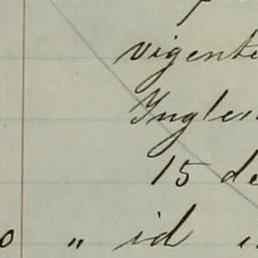 vigente
Ingles
15 de
" id